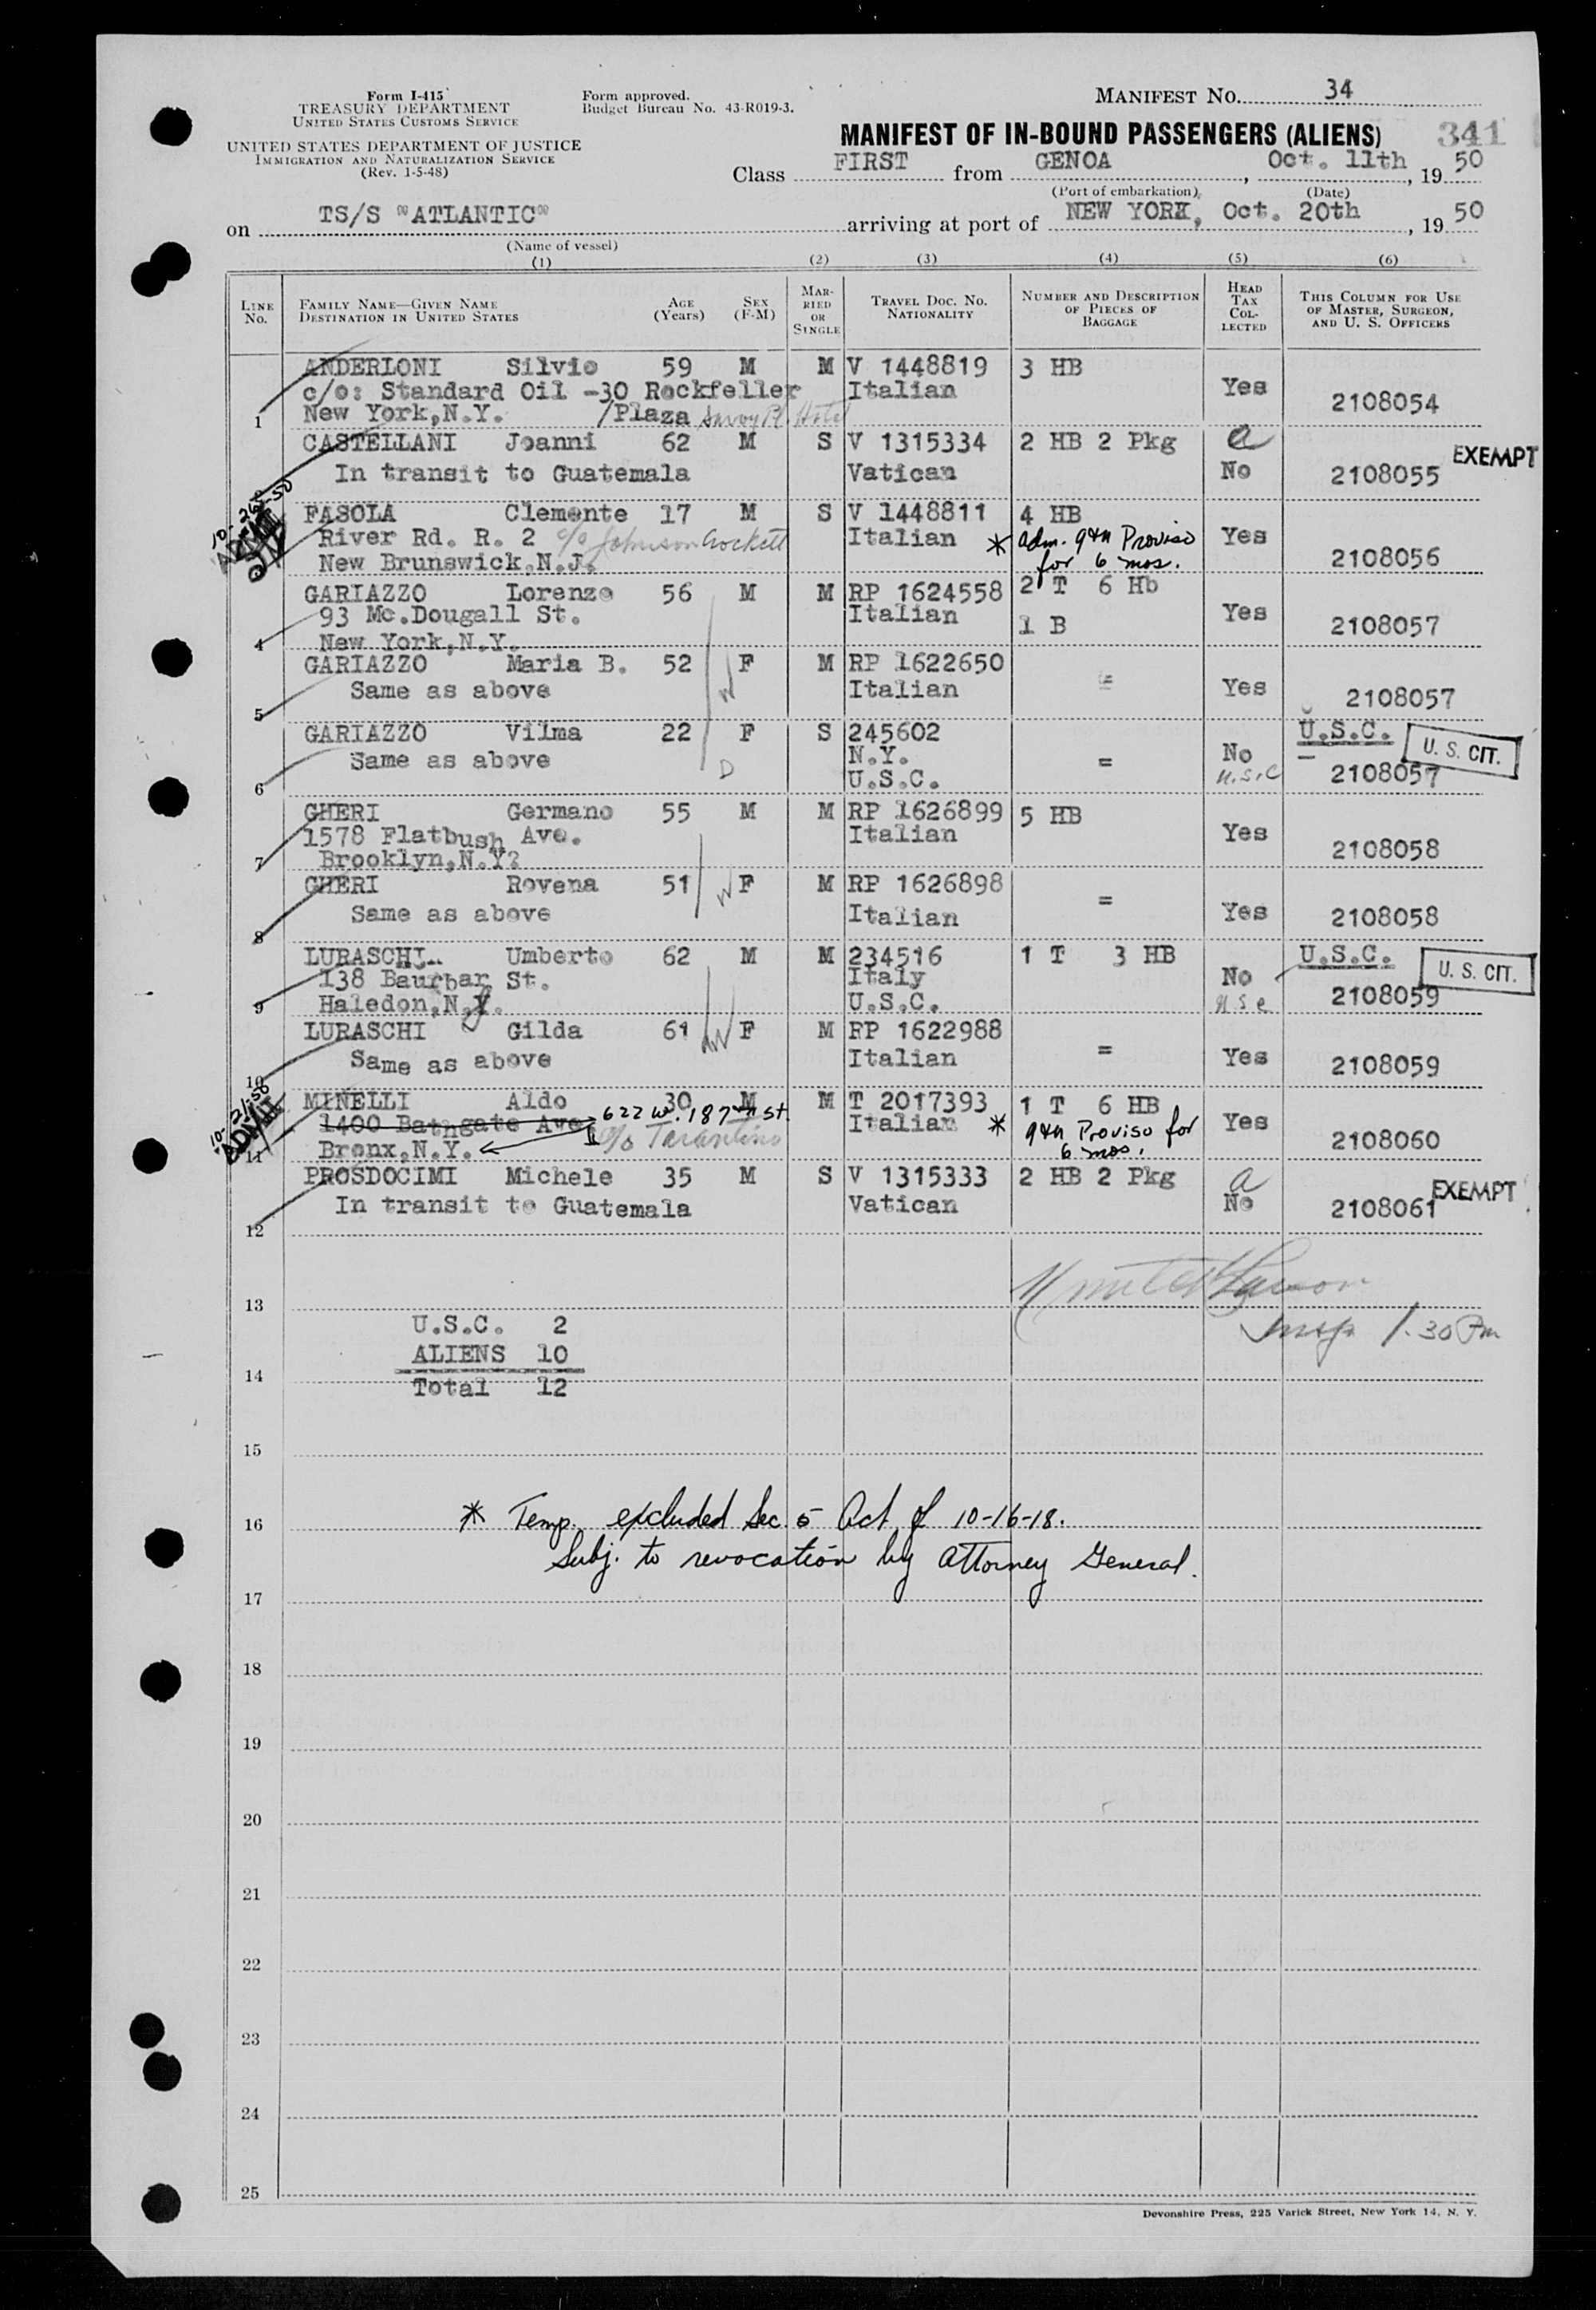 Form I-415
TREASURY DEPARTMENT
UNITED STATES CUSTOMS SERVICE
UNITED STATES DEPARTMENT OF JUSTICE
IMMIGRATION AND NATURALIZATION SERVICE
(Rev. 1-5-48)
Form approved.
Budget Bureau No. 43-R019-3.
MANIFEST NO. 34
MANIFEST OF IN-BOUND PASSENGERS (ALIENS) 341
Class FIRST from GENOA, Oct. 11th, 19 50
(Port of embarkation) (Date)
on TS/S "ATLANTIC" arriving at port of NEW YORK, Oct. 20th, 19 50
(Name of vessel)
(1) (2) (3) (4) (5) (6)
LINE No. FAMILY NAME—GIVEN NAME DESTINATION IN UNITED STATES AGE (Years) SEX (F-M) MARRIED OR SINGLE TRAVEL DOC. NO. NATIONALITY NUMBER AND DESCRIPTION OF PIECES OF BAGGAGE HEAD TAX COLLECTED THIS COLUMN FOR USE OF MASTER, SURGEON, AND U. S. OFFICERS
ANDERLONI Silvio 59 M M V 1448819 3 HB
c/o: Standard Oil -30 Rockfeller Italian Yes 2108054
1 New York,N.Y. /Plaza Savoy Pl. Hotel
CASTELLANI Joanni 62 M S V 1315334 2 HB 2 Pkg a EXEMPT
In transit to Guatemala Vatican No 2108055
10-26-50
ADMIT
FASOLA Clemente 17 M S V 1448811 4 HB
River Rd. R. 2 c/o Johnson Crockett Italian * Adm. 9th Proviso Yes
New Brunswick,N.J. for 6 mos. 2108056
GARIAZZO Lorenzo 56 M M RP 1624558 2 T 6 Hb
93 Mc.Dougall St. Italian 1 B Yes 2108057
4 New York,N.Y.
GARIAZZO Maria B. 52 W F M RP 1622650 =
5 Same as above Italian Yes 2108057
GARIAZZO Vilma 22 F S 245602 U.S.C. U. S. CIT.
Same as above N.Y. = No
6 D U.S.C. U.S.C 2108057
GHERI Germano 55 M M RP 1626899 5 HB
1578 Flatbush Ave. Italian Yes
7 Brooklyn,N.Y? 2108058
GHERI Rovena 51 W F M RP 1626898 =
8 Same as above Italian Yes 2108058
LURASCHI Umberto 62 M M 234516 1 T 3 HB U.S.C. U. S. CIT.
138 Baurbar St. Italy No
9 Haledon,N.J. U.S.C. U.S.C 2108059
LURASCHI Gilda 61 W F M RP 1622988 =
10 Same as above Italian Yes 2108059
10-21-50
ADMIT
MINELLI Aldo 30 M M T 2017393 1 T 6 HB
1400 Bathgate Ave. 622 W. 187th St. Italian * 9th Proviso for Yes
11 Bronx,N.Y. c/o Tarantino 6 mos. 2108060
PROSDOCIMI Michele 35 M S V 1315333 2 HB 2 Pkg a EXEMPT
In transit to Guatemala Vatican No 2108061
12
13
Insp 1.30 Pm
U.S.C. 2
ALIENS 10
14 Total 12
15
16 * Temp. excluded Sec. 5 Act of 10-16-18.
Subj. to revocation by Attorney General.
17
18
19
20
21
22
23
24
25
Devonshire Press, 225 Varick Street, New York 14, N. Y.